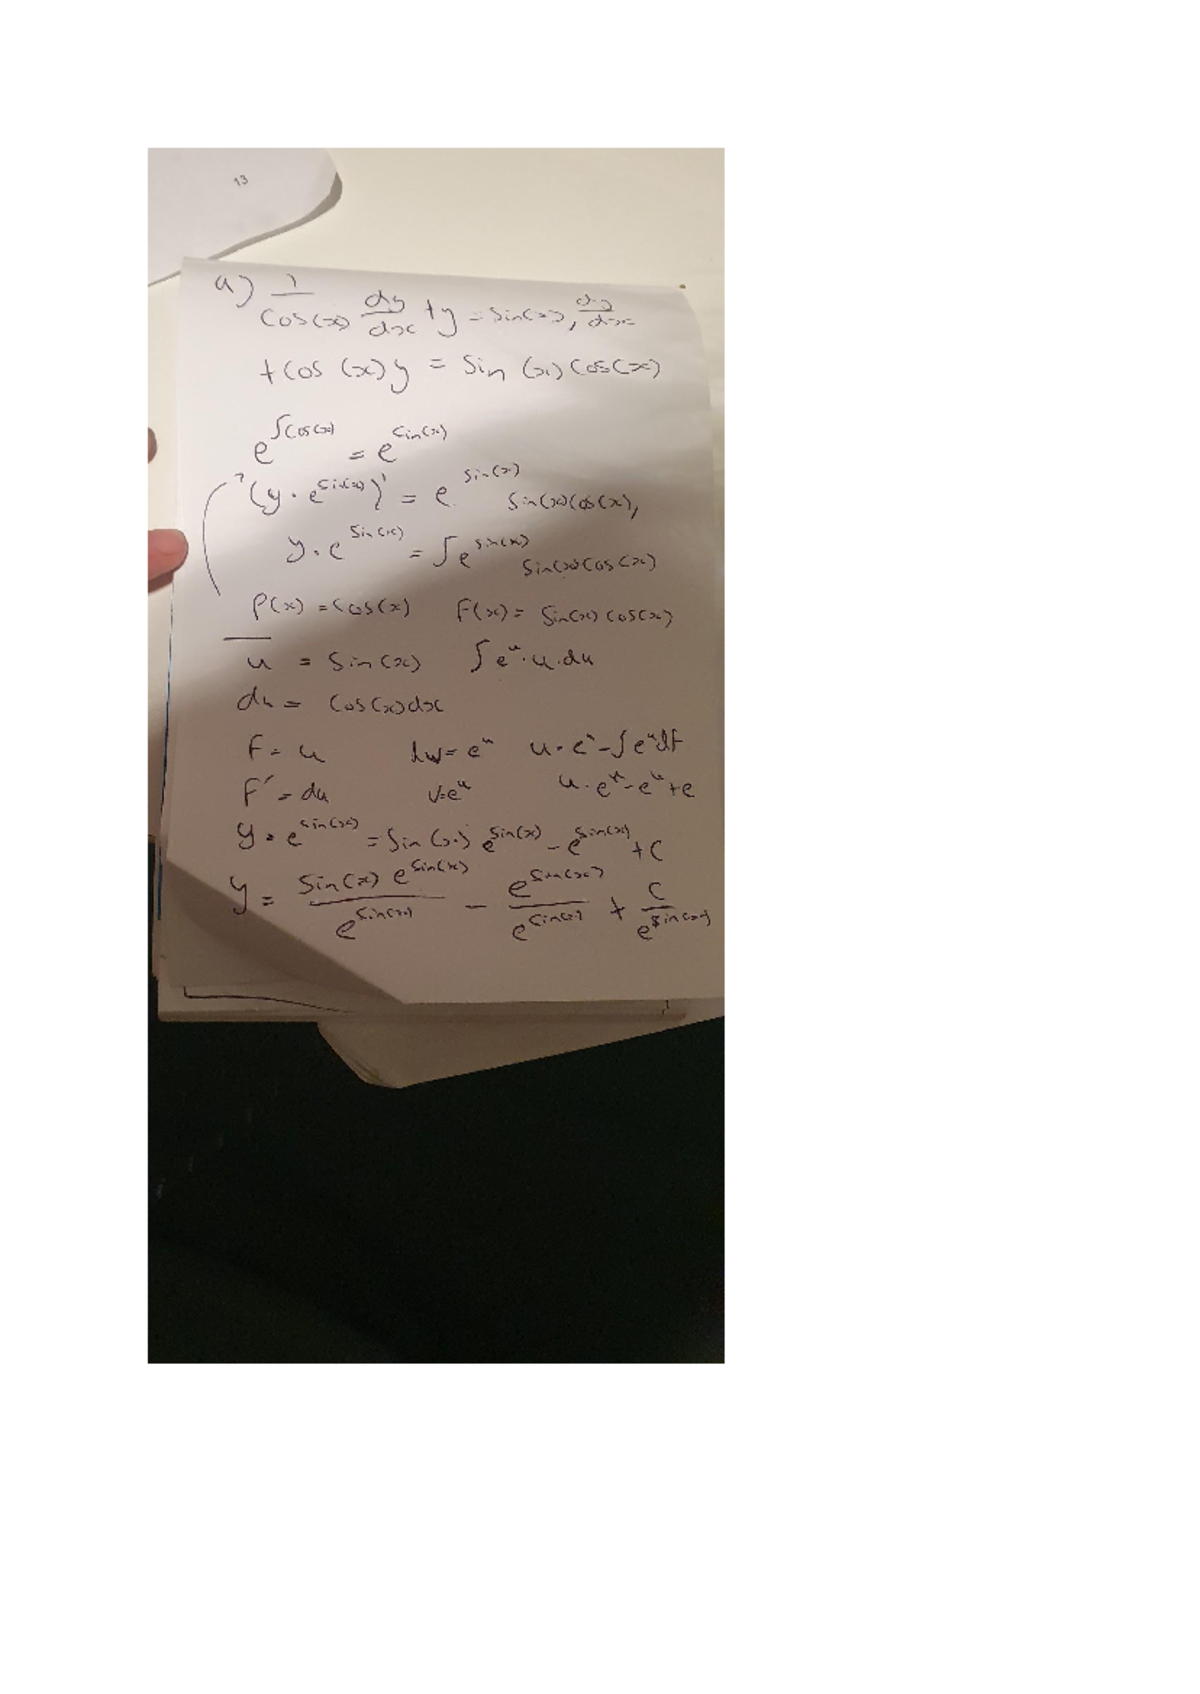 13
a) 1/cos(x) dy/dx + y = sin(x), dy/dx
+ cos(x)y = sin(x)cos(x)
e^∫cos(x) = e^sin(x)
(y · e^sin(x))' = e^sin(x) sin(x)cos(x),
y · e^sin(x) = ∫e^sin(x) sin(x)cos(x)
P(x) = cos(x) F(x) = sin(x)cos(x)
u = sin(x) ∫e^u · u · du
du = cos(x)dx
F = u dv = e^u u · e^u - ∫e^u df
F' = du v = e^u u · e^u - e^u + c
y · e^sin(x) = sin(x) e^sin(x) - e^sin(x) + C
y = sin(x) e^sin(x)/e^sin(x) - e^sin(x)/e^sin(x) + C/e^sin(x)